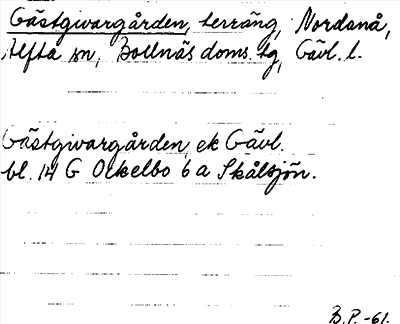 Gästgivargården, terräng, Nordanå,
Alfta sn, Bollnäs doms. tg, Gävl. l.
Gästgivargården ek Gävl.
bl. 14 G Ockelbo 6 a Skålsjön.
B.P.-61.